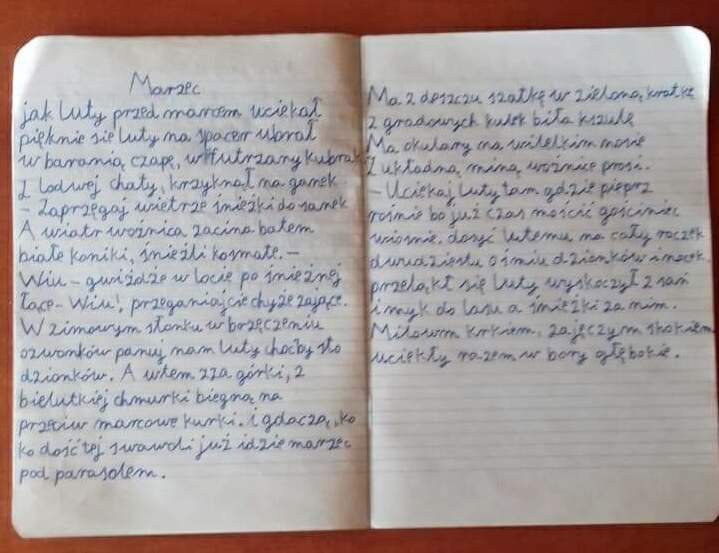 Marzec
jak luty przed marcem uciekał
pięknie się luty na spacerr ubrał
w baranią czapę, w futrzany kubrak
Z lodwej chaty, krzyknął na ganek
- Zaprzęgaj wietrze śnieżki do sanek
A wiatr woźnica zacina batem
białe koniki, śnieżki kosmate. -
Wiu - gwiżdże w locie po śnieżnej
łące - Wiu!, przeganiajcie chyże zające.
W zimowym słonku w brzęczeniu
dzwonków panuj nam luty choćby sto
dzionków. A wtem zza górki, z
bielutkiej chmurki biegną na
przeciw marcowe kurki. i gdaczą, ko
ko dość tej swawoli już idzie marzec
pod parasolem.
Ma z deszczu szatkę w zieloną, kratkę
z gradowych kulek biła kszulę
Ma okulary na wilelkim nosie
Z układną, miną woźnice prosi.
- Uciekaj luty tam gdzie pieprz
rośnie bo już czas mościć gościniec
wiosnie. dosyć lutemu na cały roczek
dwudziestu ośmiu dzionków i nocek.
przeląkł się luty wyskoczył z sań
i myk do lasu a śnieżki za nim.
Milowm krkiem, zajęczym skokiem
uciekły razem w bory głębokie.